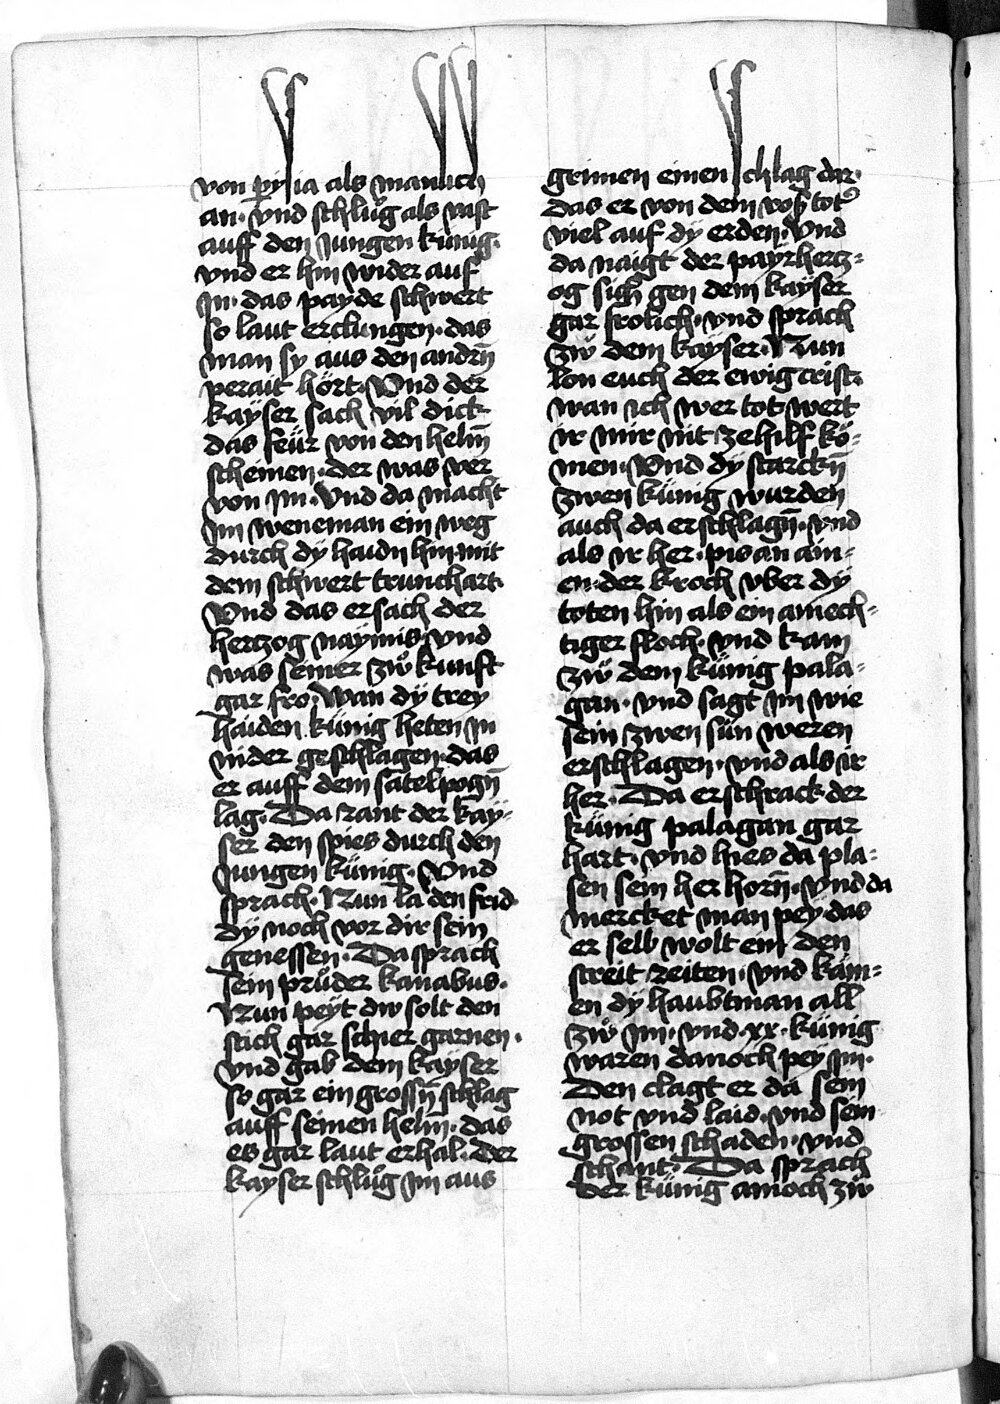 von persia als manlich
an· vnd schlůg als vast
auff den Jungen künig·
vnd er hin wider auf
jn· das payde schwert
so laut erclungen· das
man sy aus den andrn̄
perait hört· Vnd der
kayser sach vil dick
das feür von den helm̄
scheinen· der was ver
von jm· Vnd da macht
jm weneman ein weg
durch dÿ haidn hin· mit
dem schwert trunchart·
Vnd das ersach der
hertzog naymis· vnd
was seiner zẘ kunfft
gar fro· Wan dÿ trey
haiden künig heten jn
nider geschlagen· das
er auff dem satelpogn̄
lag· Da rant der kaÿ-
ser den spies durch den
jungen künig· Vnd
sprach· Nun la den frid
dÿ noch vor dir sein
genessen· Da sprach
sein průder kanabus·
Nun peÿt dw solt den
stich gar schier garnen·
vnd gab dem kayser
so gar ein grossn̄ schlag
auff seinen helm̄· das
es gar laut erhal· Der
kayser schlůg jm aus
grimen einen schlag dar·
das er von dem roß tot
viel auf dÿ erden· Vnd
da naigt der payrhertz=
og sich gen dem kaÿser
gar frölich· vnd sprach
zẘ dem kayser· Nun
lon euch der ewig crist·
wan ich wer tot wert
ir mir nit zehilf kö=
men· Vnd dÿ starckn̄
zwen künig wurden
auch da erschlagn̄· vnd
als ir her· pis an ain=
en· der kroch vber dÿ
toten hin als ein amech=
tiger floch· vnd kam
zẘ dem künig pala=
gan· vnd sagt jm wie
sein zwen sün weren
erschlagen· vnd als ir
her· Da erschrack der
künig palagan gar
hart· vnd hies da pla=
sen sein her horn̄· Vnd da
mercket man peÿ· das
er selb wolt en den
streit reiten· vnd käm=
en dÿ haubtman all
zẘ jm· vnd· xx· künig
waren danoch peÿ jm·
Den clagt er da sein
not vnd laid· vnd sein
grossen schaden· vnd
schant· Da sprach
der künig amoch zẘ